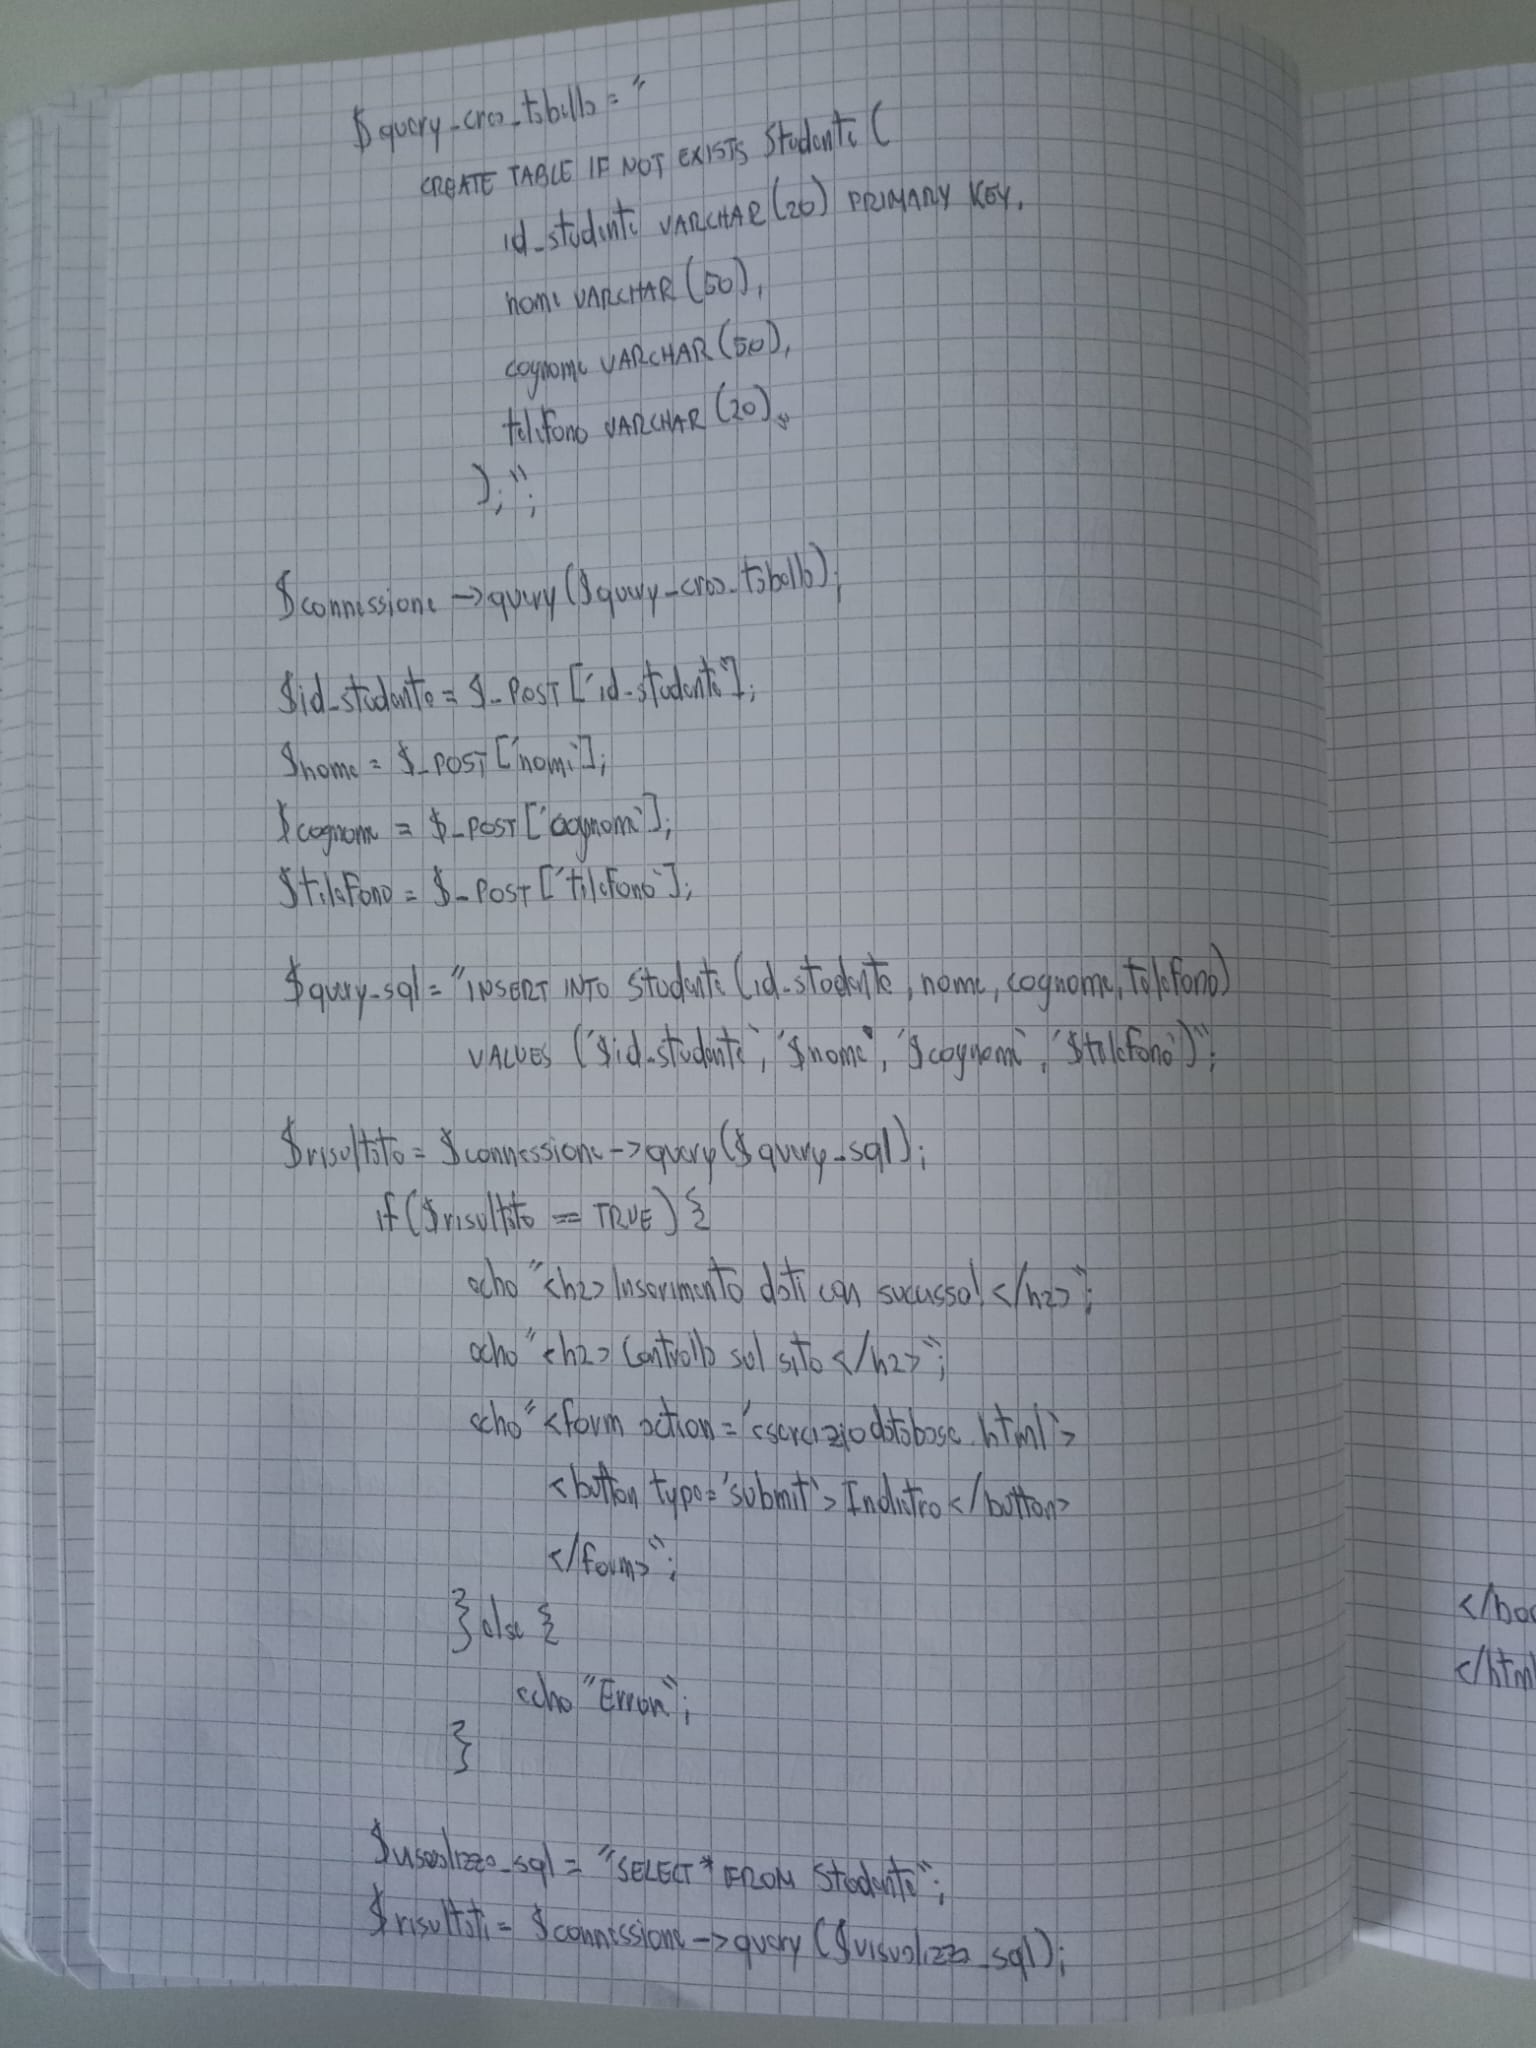 $query_crea_tabella = "
CREATE TABLE IF NOT EXISTS Studente (
id_studente VARCHAR(20) PRIMARY KEY,
nome VARCHAR(50),
cognome VARCHAR(50),
telefono VARCHAR(20)
);";
$connessione->query($query_crea_tabella);
$id_studente = $_POST['id_studente'];
$nome = $_POST['nome'];
$cognome = $_POST['cognome'];
$telefono = $_POST['telefono'];
$query_sql = "INSERT INTO Studente (id_studente, nome, cognome, telefono)
VALUES ('$id_studente', '$nome', '$cognome', '$telefono')";
$risultato = $connessione->query($query_sql);
if($risultato == TRUE){
echo "<h2>Inserimento dati con successo!</h2>";
echo "<h2>Controlla sul sito</h2>";
echo "<form action='eserciziodatabase.html'>
<button type='submit'>Indietro</button>
</form>";
}else{
echo "Errore";
}
$visualizza_sql = "SELECT * FROM Studente";
$risultati = $connessione->query($visualizza_sql);
</bod
</html